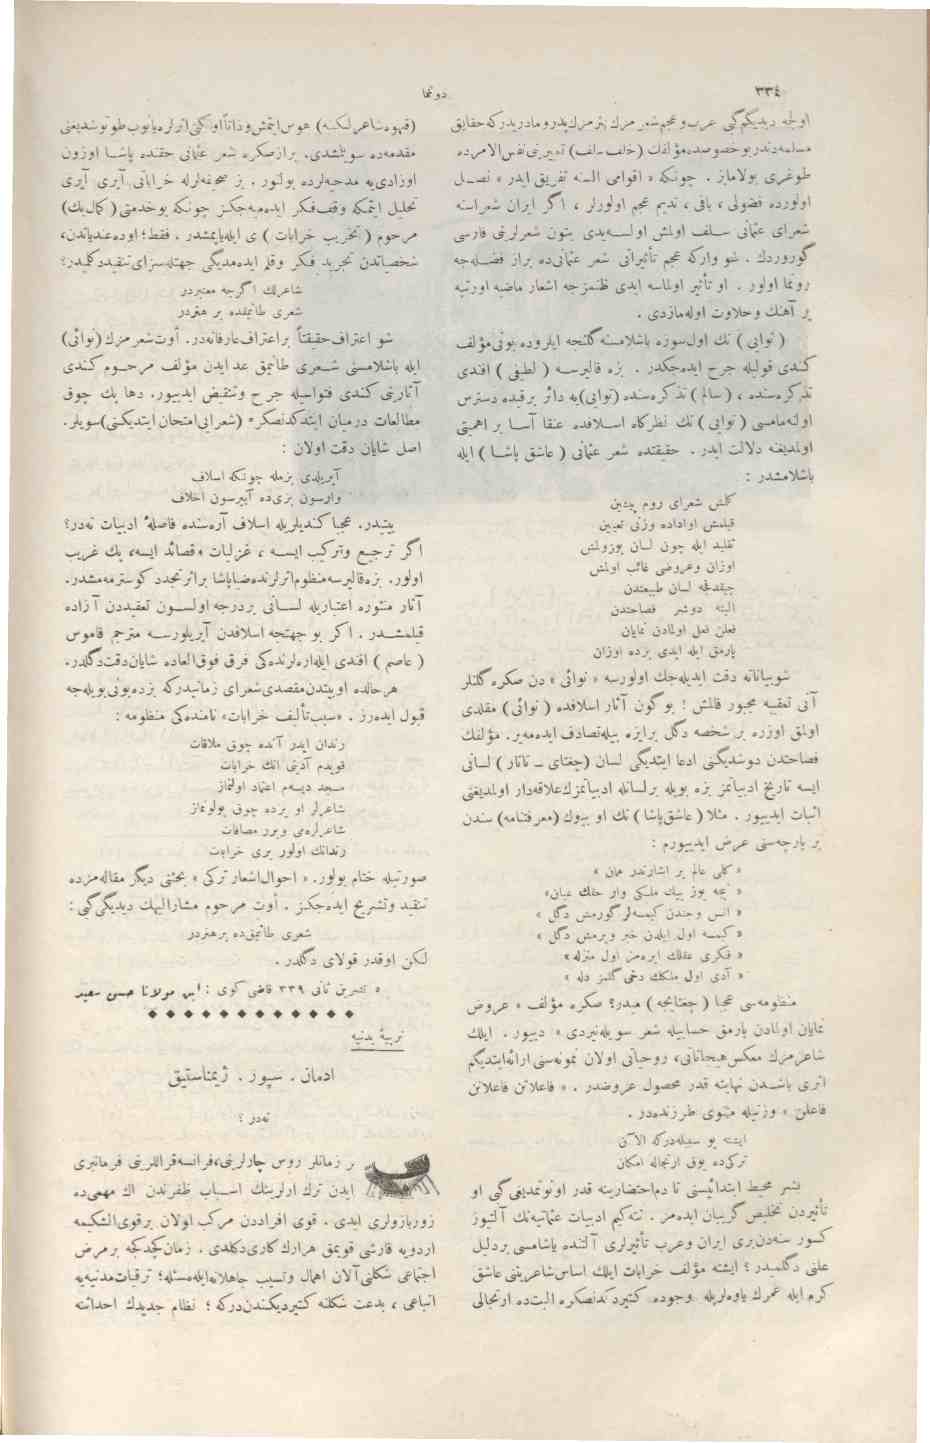 ٣٣٤
دونما
اولجه ديديكم كبى عرب و عجم شعر مزك نثر مزك پدر و مادريدركه حقايق
مسلمه‌دندر بو خصوصده مؤلفك (خلف ـ سلف) تعبيرى نفس الامرده
طوغرى بولاماز . چونكه « اقوامى السنه تفريق ايدر » نصـل
اولورده فضولى ، باقى ، نديم عجم اولورلر ، اگر ايران شعراسنه
شعراى عثمانى سـلف اولمش اولسـه‌يدى بتون شعرلرينى فارسى
گوروردك . شو وارکه عجم تأثيراتى شعر عثمانى‌ده براز فضـله‌جه
رونما اولور . او تأثير اولماسه ايدى ظنمزجه اشعار ماضيه اورتيه
بر آهنك و حلاوت اوله‌مازدى .
( نوايى ) نك اول‌سوزه باشلامسنه گلنجه ايلروده بونى مؤلف
كندى قوليله جرح ايده‌جكدر . بزه قاليرسـه ( لطيفى ) افندى
تذكره‌سنده ، ( سالم ) تذكره‌سنده (نوايى)يه دائر برقيده دسترس
اولنه‌مامسى ( نوايى ) نك نظركاه اسـلافده عنقا آسـا بر اهميتى
اولمديغنه دلالت ايدر . حقيقتده شعر عثمانى ( عاشق پاشـا ) ايله
باشلامشدر :
گلمش شعراى روم پيشين
قيلمش اواداده وزنى تعيين
تقليد ايله چون لسان بوزولمش
اوزان و عروضى غائب اولمش
چيقدقجه لسان طبيعتدن
البته دوشر فصاحتدن
فعلن فعل اولمادن نمايان
پارمق ايله ايدى بزده اوزان
شو بياناته دقت ايديله‌جك اولورسه « نوائى » دن صكره گلنلر
آنى تعقيبه مجبور قالمش ؛ بو گون آثار اسلافده ( نوائى ) مقلدى
اولمق اوزره بر شخصه دگل برايزه بيله‌تصادف ايده‌مه‌يز . مؤلفك
فصاحتدن دوشديگنى ادعا ايتديگى لسان (چغتاى ـ تاتار ) لسانى
ايسه تاريخ ادبياتمز بزه بويله بر لسانله ادبياتمزك علاقه‌دار اولمديغنى
اثبات ايدييور . مثلا ( عاشق پاشا ) نك او بيوك (معرفتنامه) سندن
بر پارچه‌سنى عرض ايدييورم :
« كلى عالم بر اشارتدر همان »
« نيچه يوز بيك ملكى وار خلك عيان»
« انس و جندن كيمسه‌لر گورمش دگل »
« كيمسه اول ايلدن خبر ويرمش دگل »
« فكرى عقلك ايره‌من اول منزله »
« آدى اول ملكك دخى گلمز دله »
منظومه‌سى عجبا ( چغتايجه ) ميدر؟ صكره مؤلف « عروض
نمايان اولمادن پارمق حسابيله شعر سويله‌نيردى » دييور . ايلك
شاعرمزك معكس هيجاناتى ، روحياتى اولان نمونه‌سنى ارائه‌ايتديكم
اثرى باشـدن نهايته قدر محصول عروضدر . « فاعلاتن فاعلاتن
فاعلن » وزنيله مثنوى طرزنده‌در .
ايشته بو سببله‌دركه الآن
تركى‌ده يوق ارتجاله امكان
بشر محيط ابتدائيسنى تا دم‌احتضارينه قدر اونوتمديغى كى او
تأثيردن تخليص گريبان ايده‌مز . نته‌كيم ادبيات عثمانيه‌نك آلتيوز
كسور سنه‌دن‌برى ايران و عرب تأثيرلرى آلتنده ياشامسى بردليل
علنى دگلميدر ؟ ايشته مؤلف خرابات ايلك اساس شاعريتنى عاشق
كرم ايله عمرك ياوه‌لريله وجوده كتيردكدنصكره البت‌ده ارتجالى
(قهوه شاعرلكنه) هوس ايتمش و ذاتاً او كنى اثرلره يانوب طوتوشديغنى
مقدمه‌ده سويلمشدى. برازصكره شعر عثمانى حقنده پاشـا اوزون
اوزادى‌يه مدحيه‌لرده بولنور . بز صحيفه‌لرله خراباتى آيرى آيرى
تحليل ايتمكه وقف فكر ايده‌ميه‌جكز چونكه بو خدمتى ( كمال بك)
مرحوم ( تخريب خرابات ) ى ايله‌ياپمشدر . فقط ؛ اوده‌عندياتدن،
شخصياتدن تجريد فكر و قلم ايده‌مديگى جهتله‌سزاى تنقيددگلميدر؟
شاعرلك اگرچه معتبردر
شعرى طانيمقده بر هنردر
شو اعتراف حقيقتاً براعتراف عارفانه‌در. اوت شعر مزك (نوائى)
ايله باشلامسنى شـعرى طانيمق عد ايدن مؤلف مرحـوم كندى
آثارينى كندى فتواسيله جرح و تنقيض ايدييور. دها پك چوق
مطالعات درميان ايتدكدنصكره (شعرايى امتحان ايتديكنى) سويلر.
اصل شايان دقت اولان :
آيريلدى بزمله چونكه اسلاف
وارسون بزى‌ده آييرسون اخلاف
بيتيدر. عجبا كنديلريله اسلاف آره‌سنده فاصلهٔ ادبيات نه‌در؟
اگر ترجيع و تركيب ايسـه ، غزليات و قصائد ايسه، پك غريب
اولور. بزه قاليرسه منظوم اثرلرنده ضيا پاشا براثر تجدد كوسترمه‌مشدر.
آثار منثوره اعتباريله لسـانى بردرجه اولسـون تعقيددن آزاده
قيلمشـدر . اكر بو جهتجه اسلافدن آيريلورسـه مترجم قاموس
( عاصم ) افندى ايله‌اره‌لرنده‌كى فرق فوق‌العاده شايان دقت دگلدر.
هر حالده او بيتدن مقصدى شعراى زمانيدركه بزده بونى بويله‌جه
قبول ايده‌رز . «سبب تأليف خرابات» نامنده‌كى منظومه :
رندان ايدر آنده چوق ملاقات
قويدم آدينى انك خرابات
مسجد ديسه‌م اعتماد اولنماز
شاعرلر او يرده چوق بولونماز
شاعرلره‌مى ويرر مصافات
رندانك اولور يرى خرابات
صورتيله ختام بولور. « احوال اشعار تركى » بحثنى ديگر مقاله‌مزده
تنقيد و تشريح ايده‌جكز . اوت مرحوم مشاراليهك ديديگى كبى :
شعرى طانيمق‌ده برهنردر
لكن اوقدر قولاى دگلدر .
٥ تشرين ثانى ٣٣٩ قاضى كوى : ابن مولانا حسن سعيد
تربيهٔ بدنيه
ادمان . سپور . ژيمناستيق
نه‌در ؟
بر زمانلر روس چارلرينى، فرانسه قراللرينى فرمانبرى
ايدن ترك ارلرينك اسـباب ظفرندن اك مهمى‌ده
زور بازولرى ايدى . قوى افراددن مركب اولان برقوى‌الشكيمه
اردويه قارشى قويمق هرارك كارى دكلدى . زمان كچدكجه بر مرض
اجتماعى شكلنى آلان اهمال و تسيب جاهلانه ايله مسئله ؛ ترقيات مدنيه‌يه
اتباعى ، بدعت شكلنه كتيرديكندن دركه ؛ نظام جديدك احداثنه